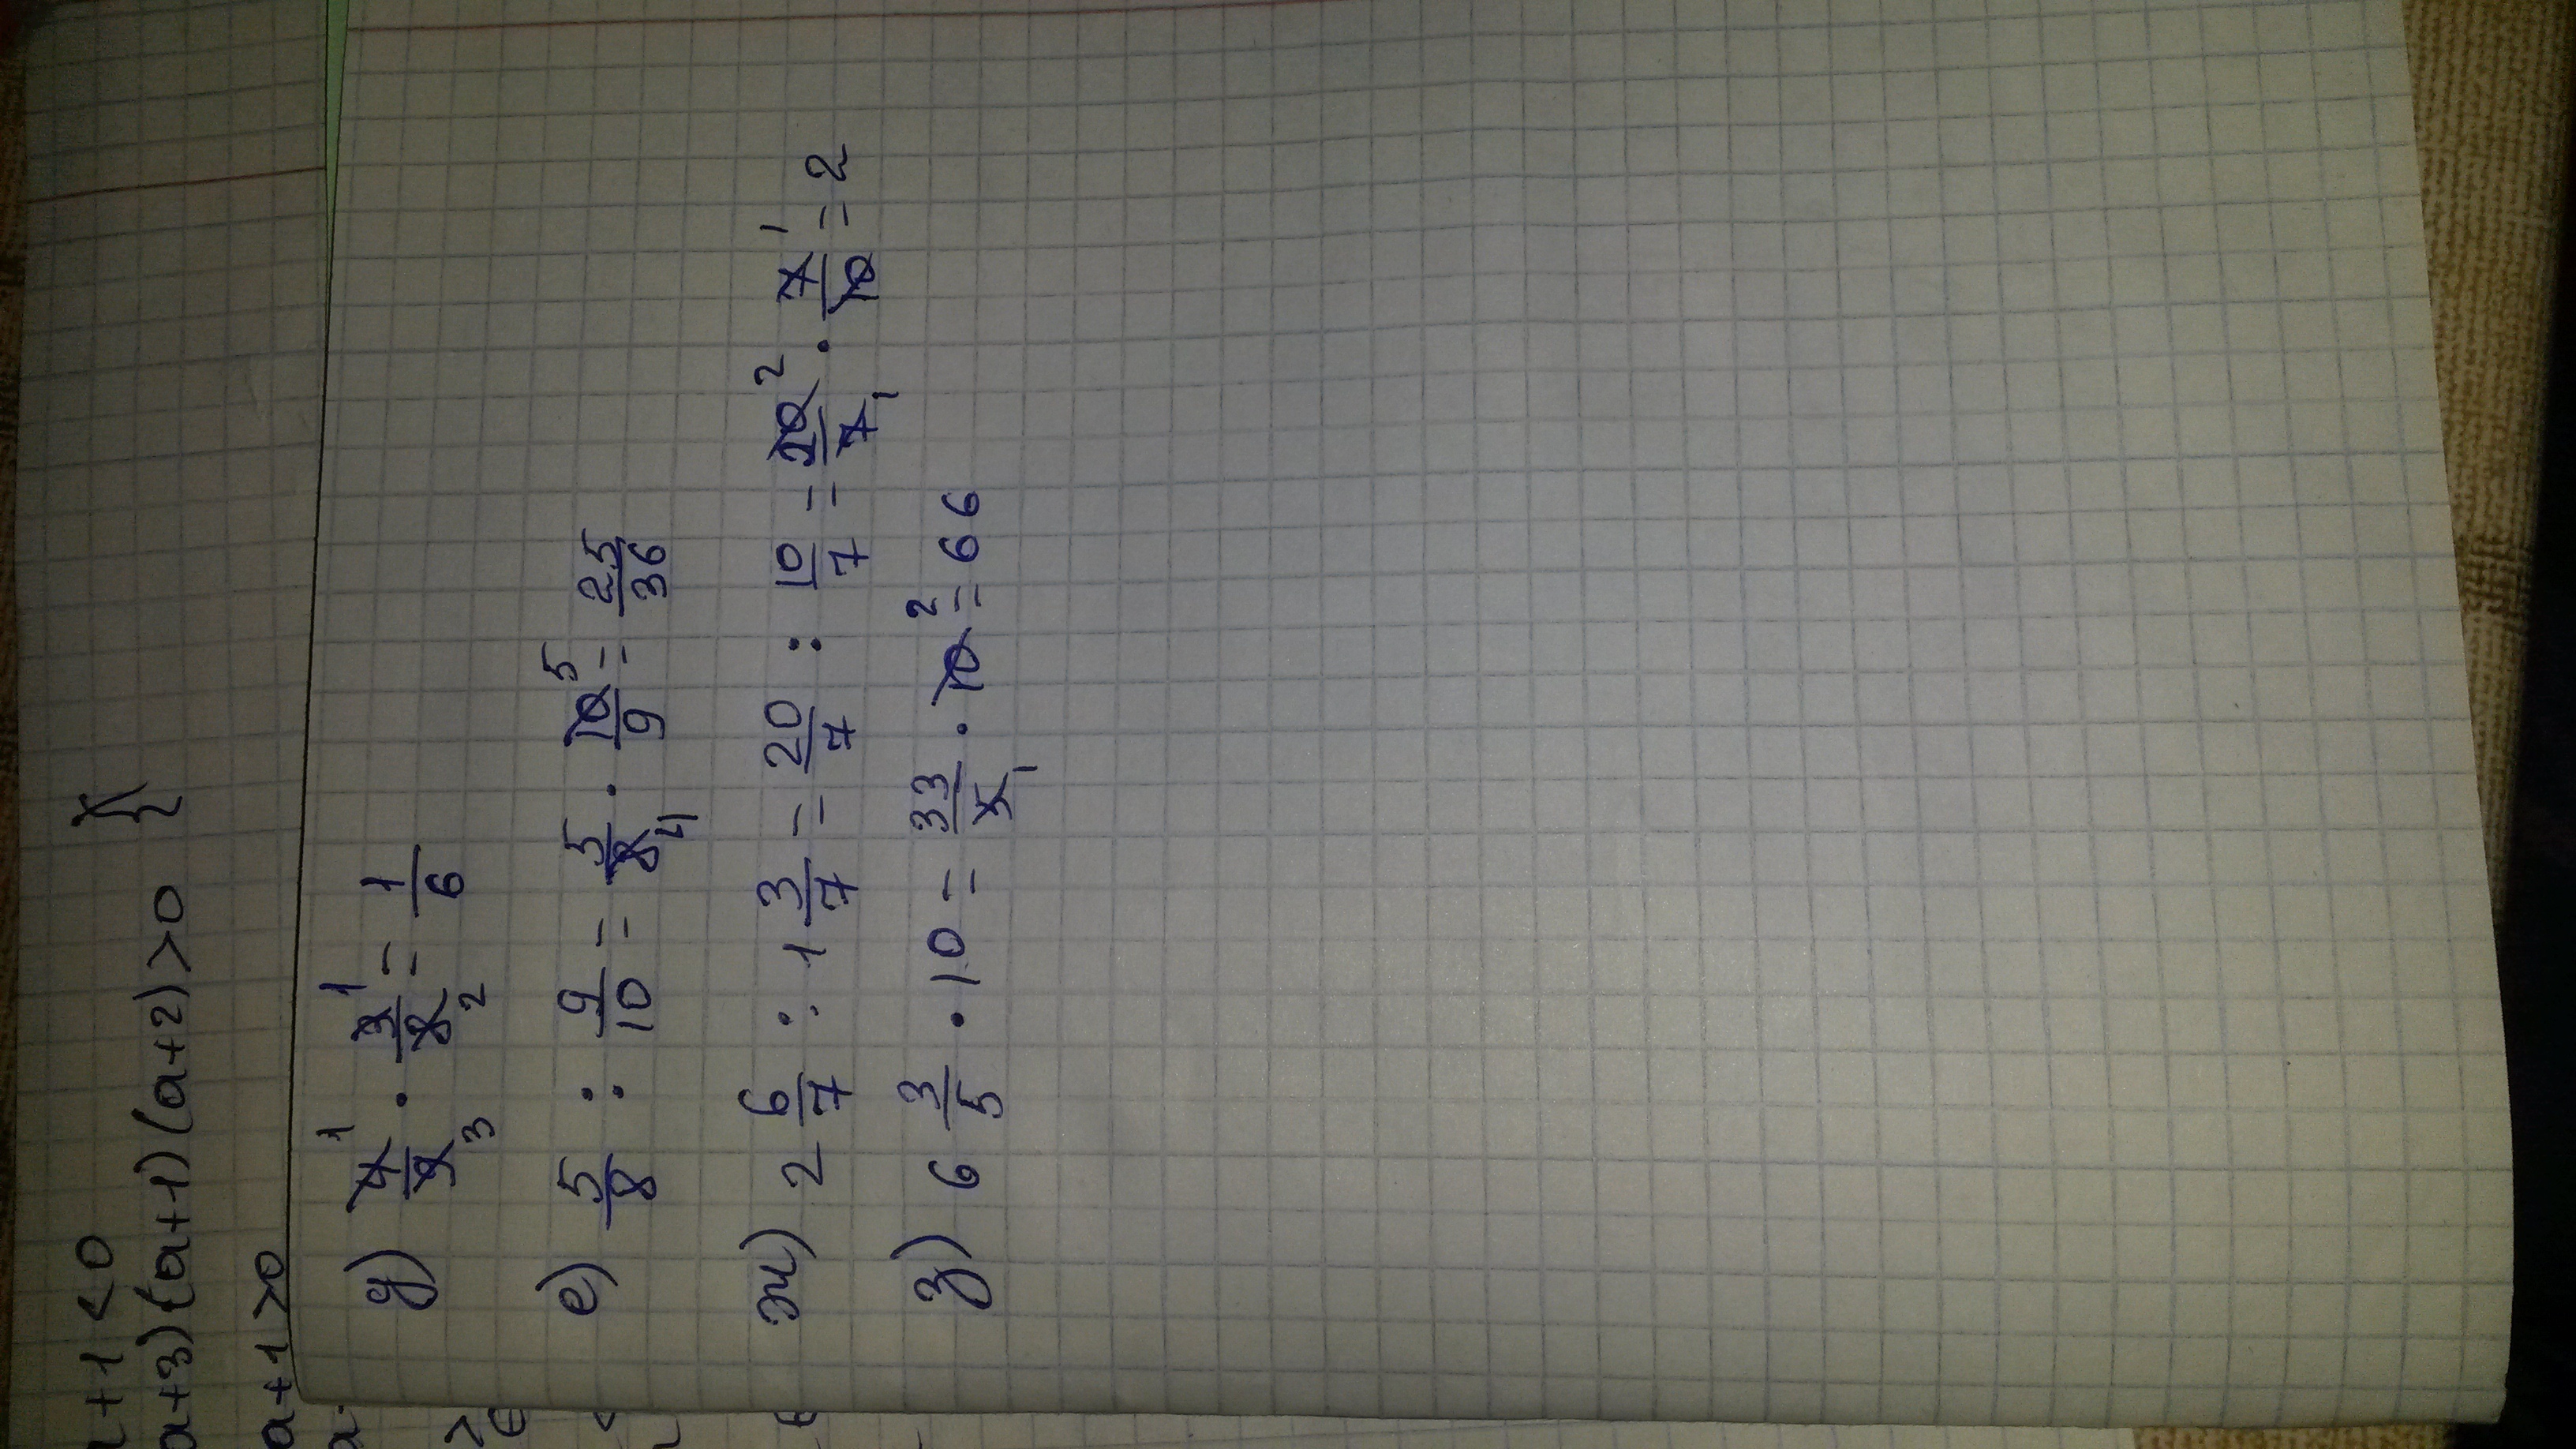 a+1<0
a+3)(a+1)(a+2)>0 }
a+1>0
д) 4/9 · 3/8 = 1/6
е) 5/8 : 9/10 = 5/8 · 10/9 = 25/36
ж) 2 6/7 : 1 3/7 = 20/7 : 10/7 = 20/7 · 7/10 = 2
з) 6 3/5 · 10 = 33/5 · 10 = 66